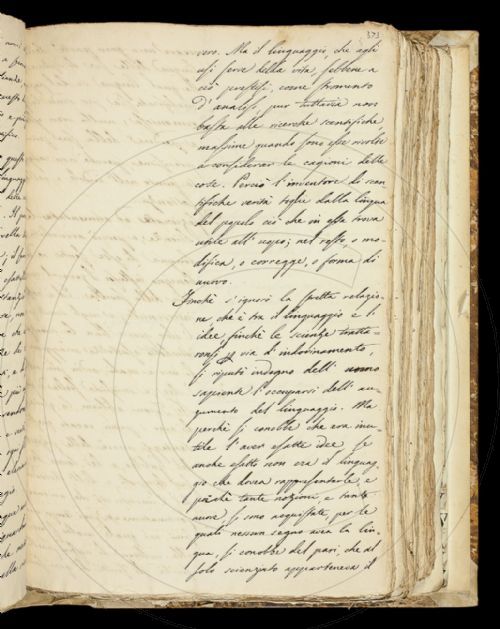 373
vero. Ma il linguaggio, che agli
usi serve della vita, sebbene a
ciò prestisi, come stromento
d'analisi, pur tuttavia non
basta alle ricerche scientifiche,
massime quando sono esse rivolte
a considerar le cagioni delle
cose. Perciò l'inventore di scen-
tifiche verità toglie dalla lingua
del popolo ciò che in essa trova
utile all'uopo; nel resto, o mo-
difica, o corregge, o forma di
nuovo.
Finchè s'ignorò la stretta relazio-
ne, che è tra il linguaggio e l'
idee, finchè le scienze tratta-
ronsi per via di indovinamento,
si riputò indegno dell' uomo
sapiente l'occuparsi dell' au-
gumento del linguaggio. Ma
perchè si conobbe che era inu-
tile l'aver esatte idee se
anche esatto non era il linguag-
gio che dovea rappresentarle, e
poichè tante nozioni, e tante
nuove si sono acquistate, per le
quali nessun segno avea la lin-
gua, si conobbe del pari, che al
solo scienziato apparteneva il